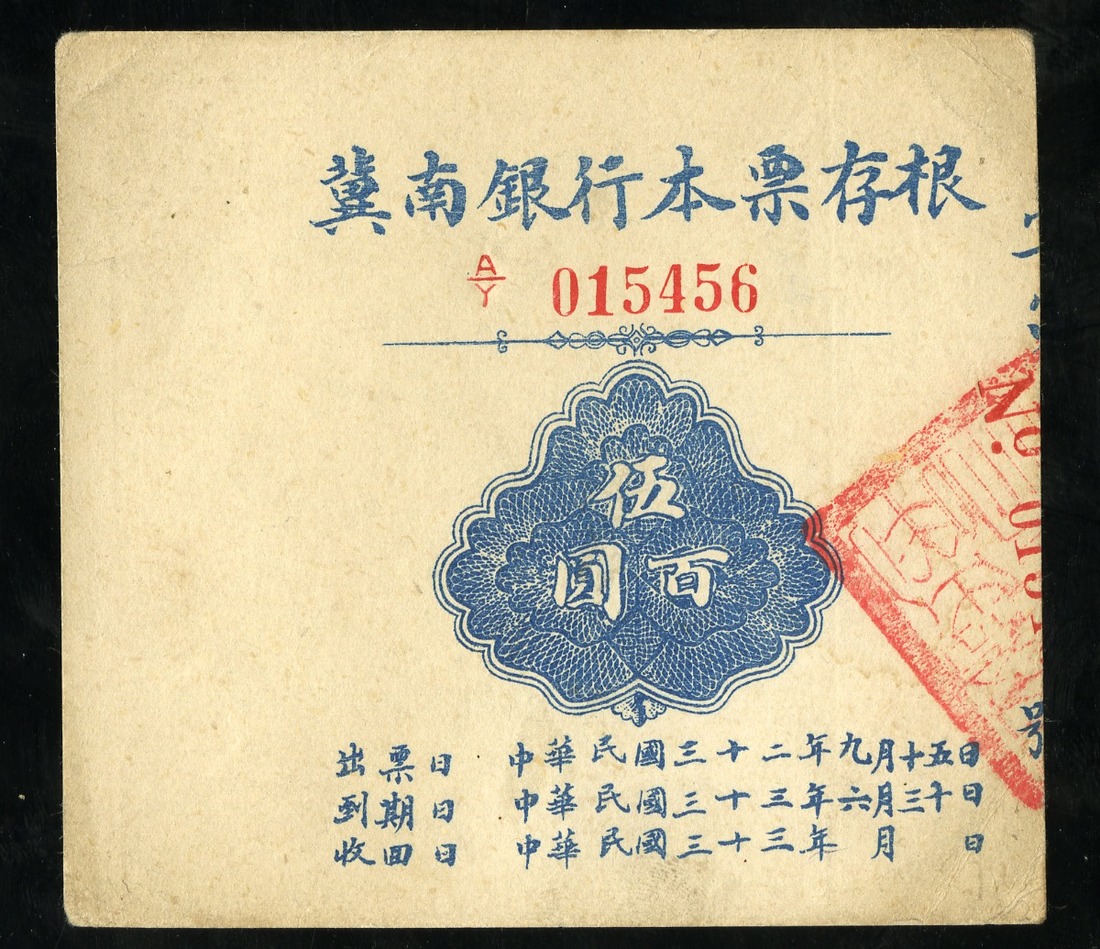 冀南銀行本票存根
A/Y 015456
伍
百圓
No. 015
號
出票日 中華民國三十二年九月十五日
到期日 中華民國三十三年六月三十日
收回日 中華民國三十三年 月 日